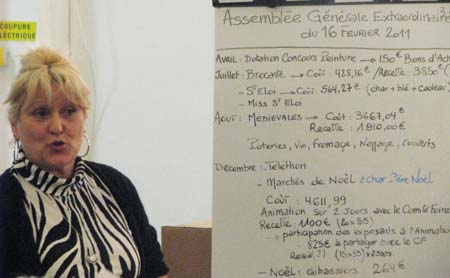 COUPURE
ELECTRIQUE
Assemblée Générale Extraordinaire
du 16 FEVRIER 2011
AVRIL: Dotation Concours Peinture → 150€ Bons d'Ach
Juillet: Brocante → Coût: 428,16€ /Recette: 3850€
- St ELOI → Coût: 564,27€ (char + blé + cadeau)
- Miss St ELOI
AOUT: MEDIEVALES → Coût: 3667,04€
Recette: 1910,00€
Poteries, Vin, Fromage, Nappage, couverts
DÉCEMBRE: Téléthon
- Marchés de Noël char Père Noël
Coût: 4611,99
Animation sur 2 Jours avec le Comité Foire
Recette: 1100€ (20x55)
+ participation des exposants à l'Animation
825€ à partager avec le CF
(15x55)
- NOËL: Gibassiers 264€